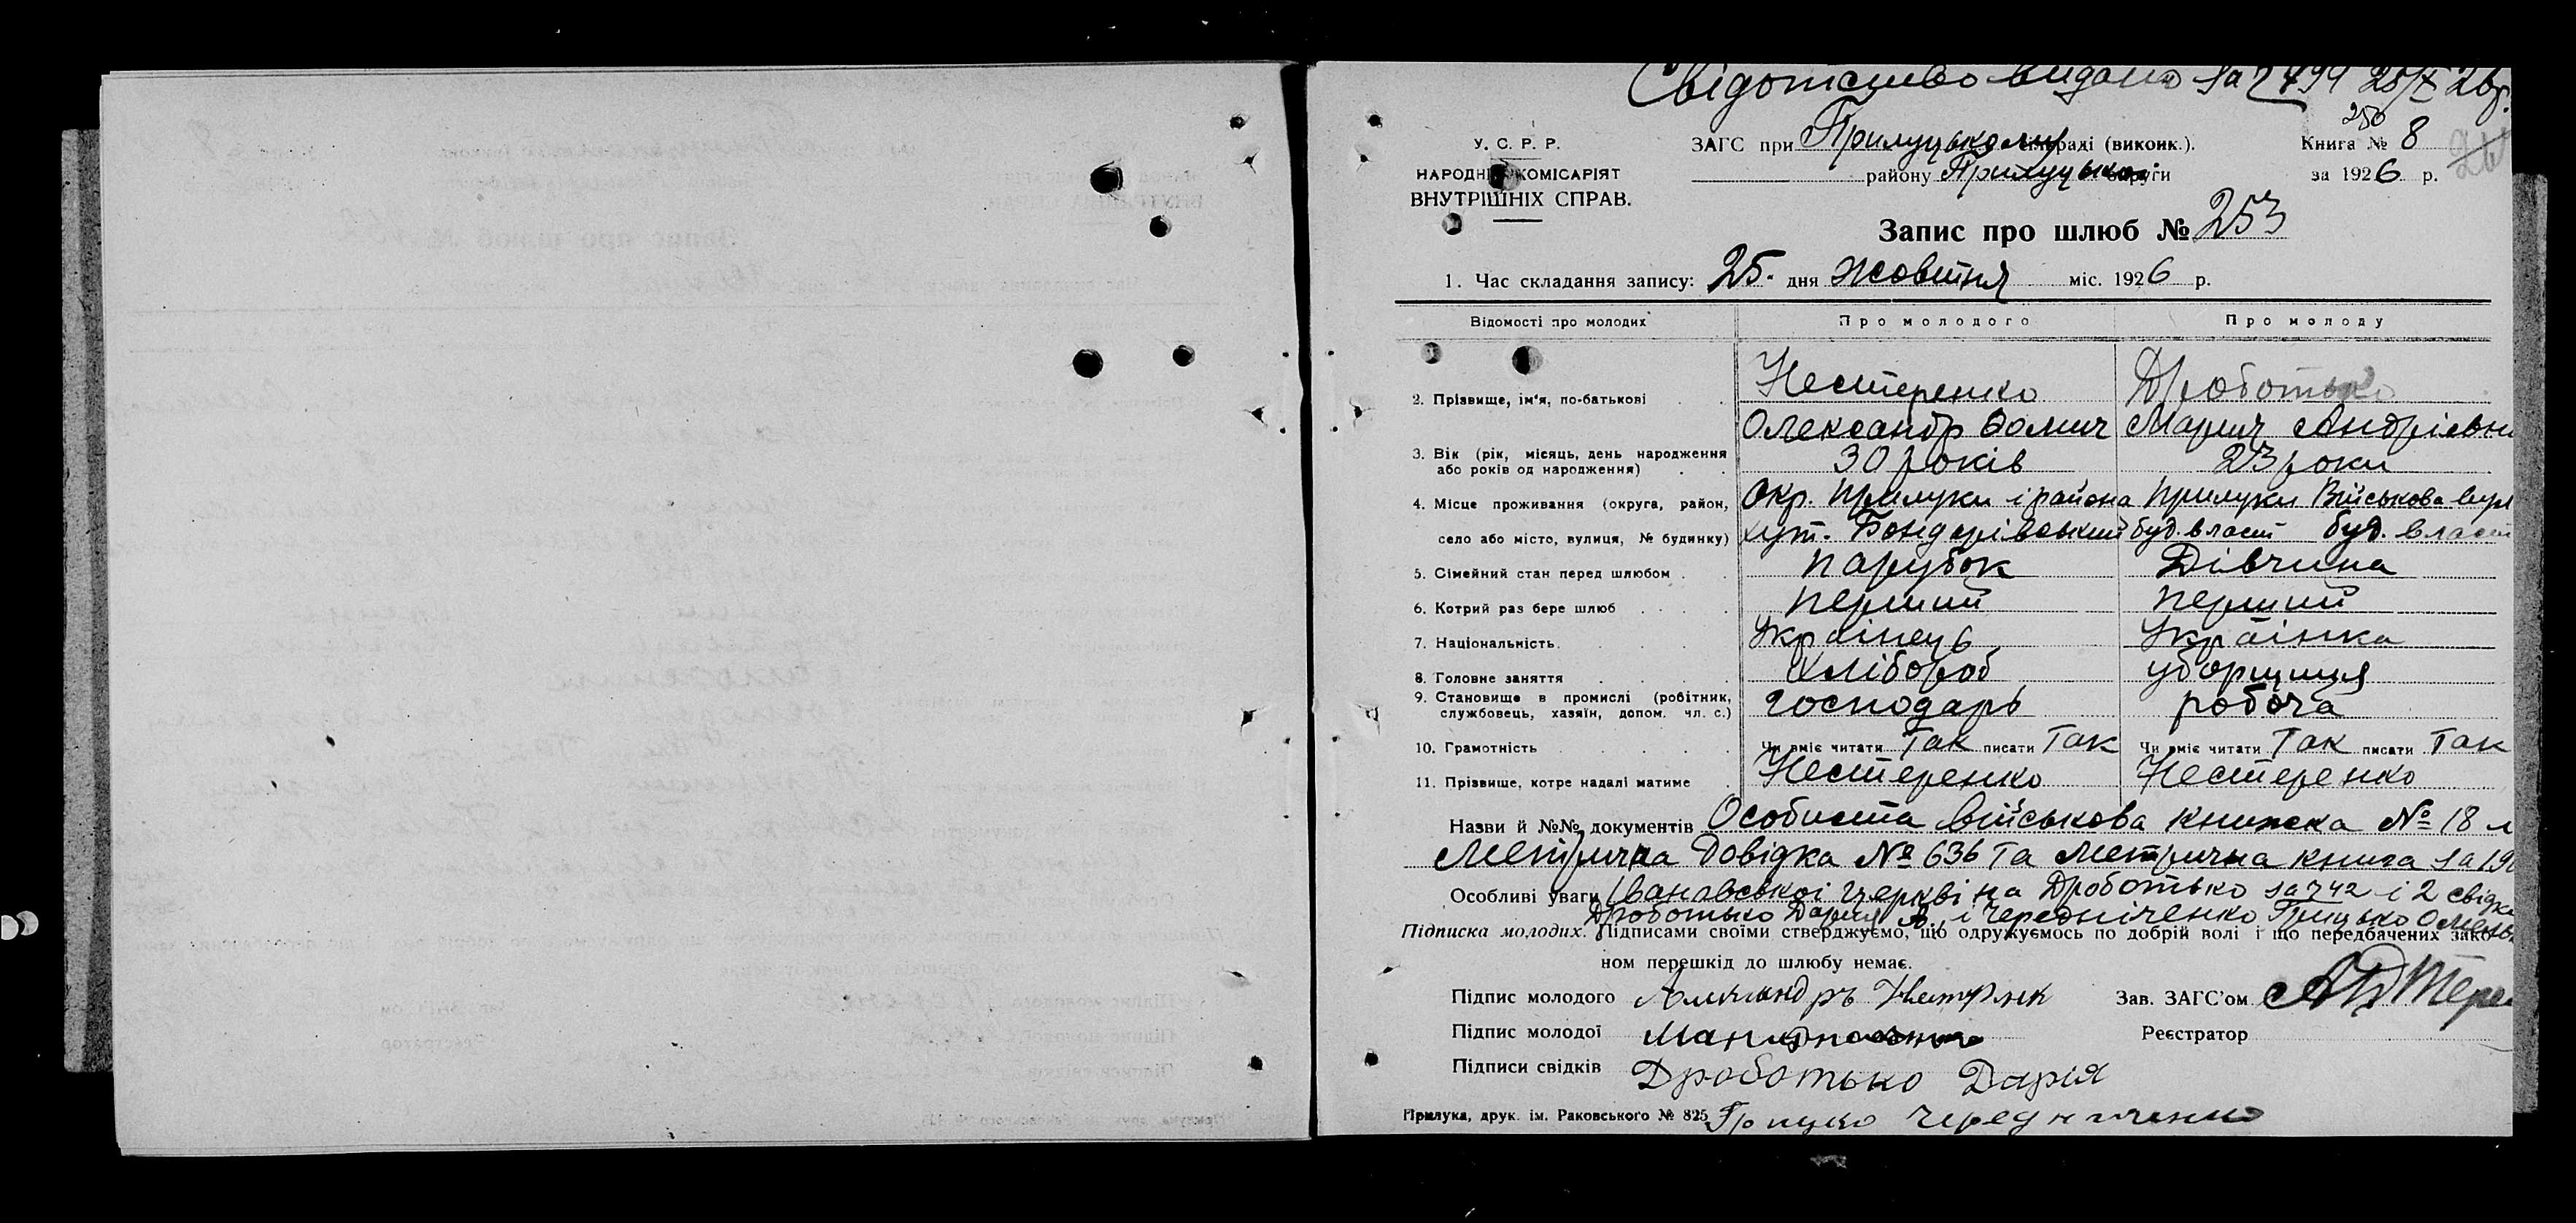 Свідотство видано за 2499 25/X 26 р.
У. С. Р. Р.
НАРОДНІЙ КОМІСАРІЯТ
ВНУТРІШНІХ СПРАВ.
ЗАГС при Прилуцькому міськраді (викоик.).
району Прилуцької округи
250
Книга № 8
за 1926 р.
Запис про шлюб № 253
1. Час складання запису: 25 дня жовтня міс. 1926 р.
Відомості про молодих Про молодого Про молоду
2. Прізвище, ім'я, по-батькові Нестеренко Дроботько
Олександр Хомич Мария Андріевн
3. Вік (рік, місяць, день народження або років од народження) 30 років 23 роки
4. Місце проживання (округа, район, Окр. Прилуки і района Прилуки Військова вул
село або місто, вулиця, № будинку) хут. Бондарівський буд. власт буд. власт
5. Сімейний стан перед шлюбом парубок Дівчина
6. Котрий раз бере шлюб перший перший
7. Національність Українець Українка
8. Головне заняття хлібороб уборщиця
9. Становище в промислі (робітник, службовець, хазяїн, допом. чл. с.) господарь робоча
10. Грамотність Чи вміє читати Так писати Так Чи вміє читати Так писати Так
11. Прізвище, котре надалі матиме Нестеренко Нестеренко
Назви й №№ документів Особиста військова книжка № 18
Метрична довідка № 636 та метрична книга за 19
Особливі уваги Івановської церкві на Дроботько за № 42 і 2 свідк
Дроботько Дария А. і Чередніченко Грицько Омель
Підписка молодих. Підписами своїми стверджуємо, що одружуємось по добрій волі і що передбачених зако-
ном перешкід до шлюбу немає.
Підпис молодого Зав. ЗАГС'ом
Підпис молодої Реєстратор
Підписи свідків Дроботько Дарія
Прилука, друк. ім. Раковського № 825 Грицко Чередниченко